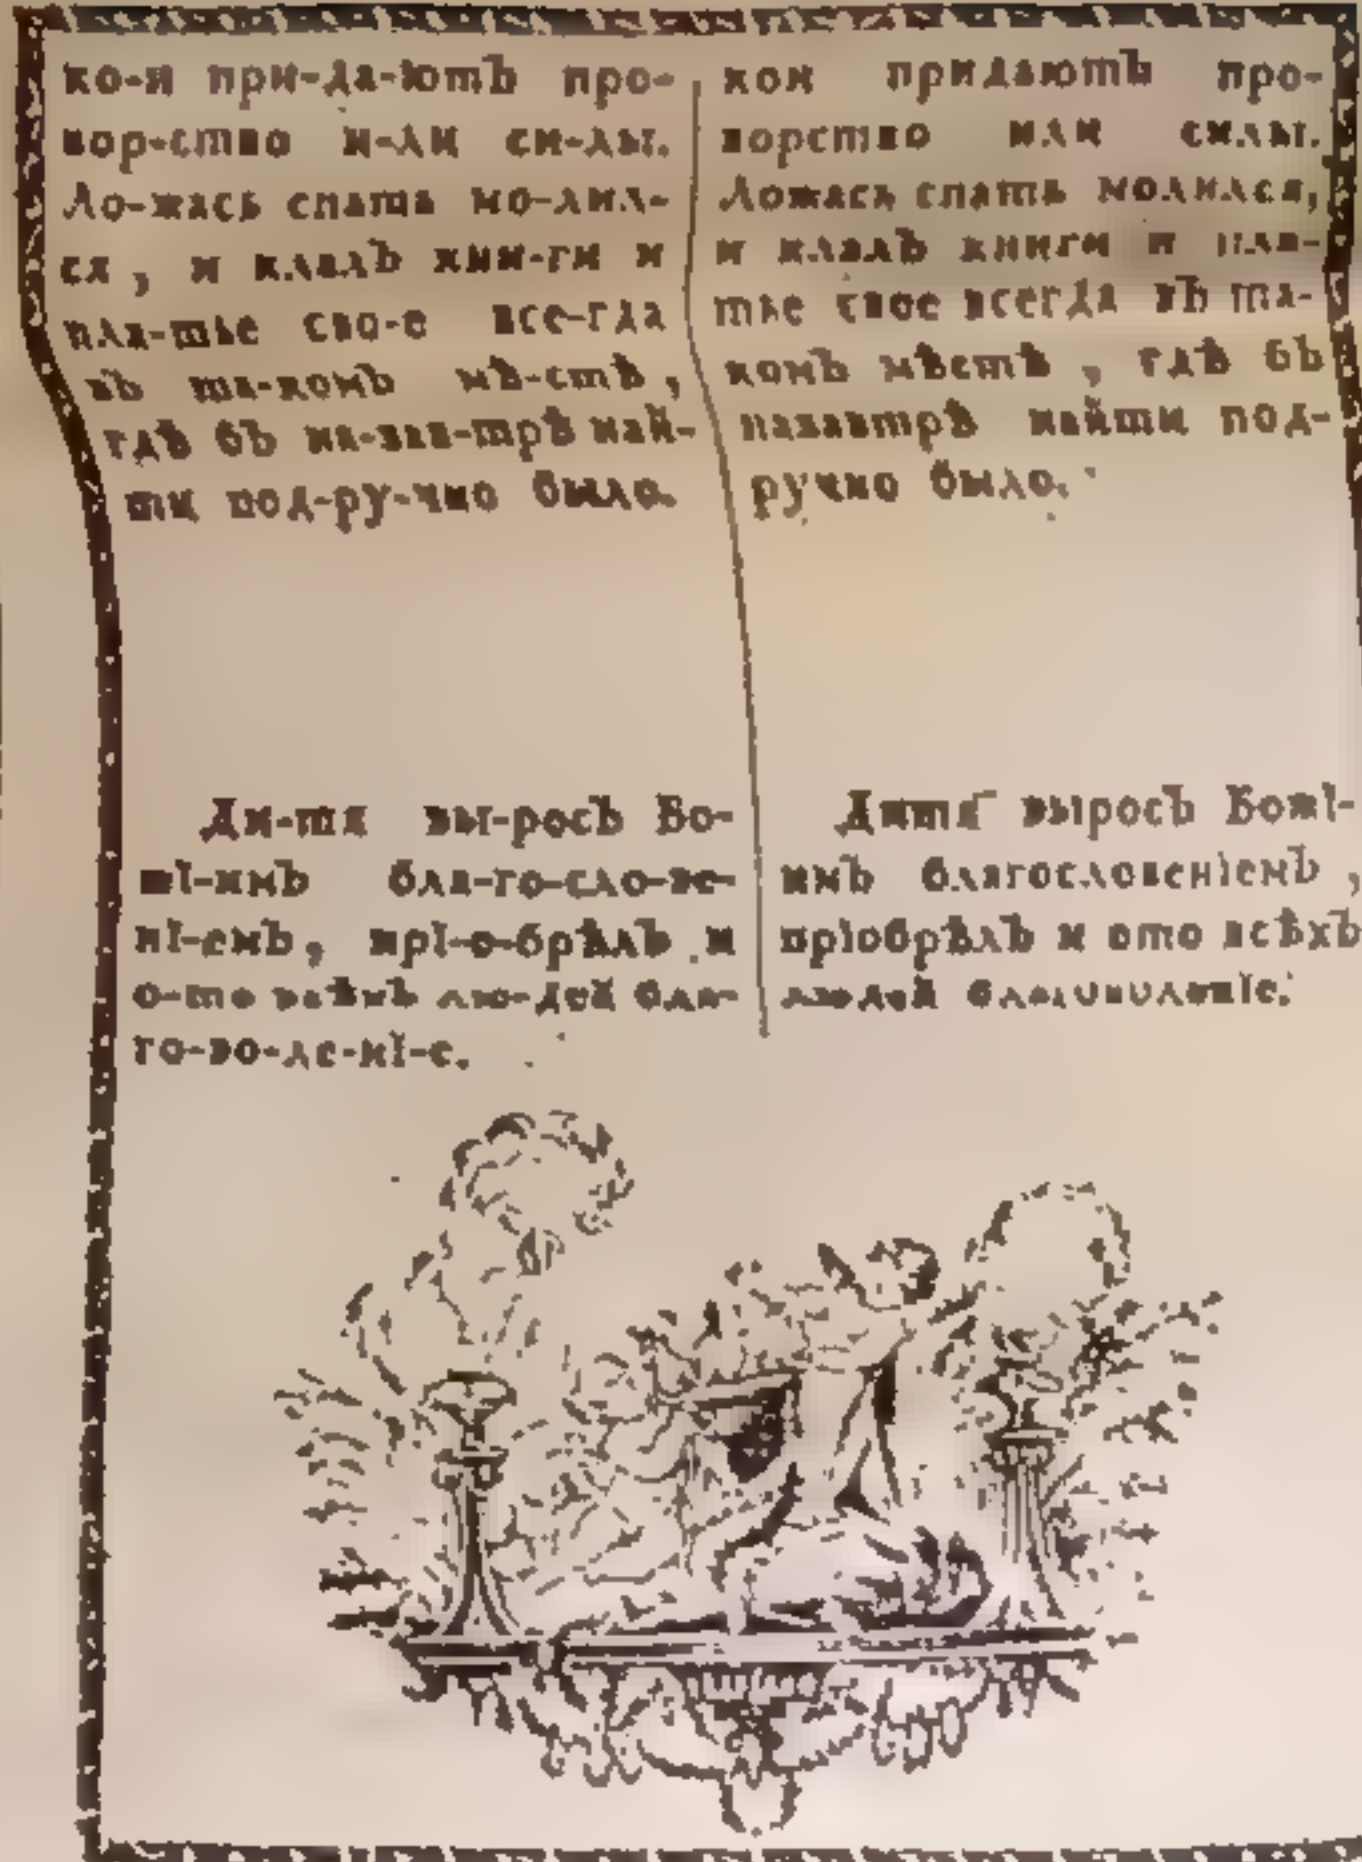 ко-и при-да-ютъ про-
вор-ство и-ли си-лы.
Ло-жась спать мо-лил-
ся, и клалъ кни-ги и
пла-тье сво-е все-гда
въ та-комъ мѣ-стѣ,
гдѣ бъ на-зав-трѣ най-
ти под-ру-чно было.
Ди-тя вы-росъ Бо-
жі-имъ бла-го-сло-ве-
ні-емъ, прі-о-брѣлъ и
о-то всѣхъ лю-дей бла-
го-во-ле-ні-е.
кои придаютъ про-
ворство или силы.
Ложась спать молился,
и клалъ книги и пла-
тье свое всегда въ та-
комъ мѣстѣ, гдѣ бъ
назавтрѣ найти под-
ручно было.
Дитя выросъ Божі-
имъ благословеніемъ,
пріобрѣлъ и ото всѣхъ
людей благоволеніе.